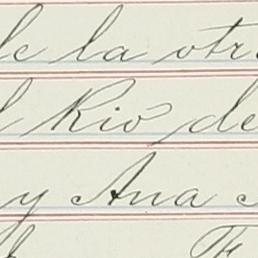 de la otr
l Rió de
y Ana